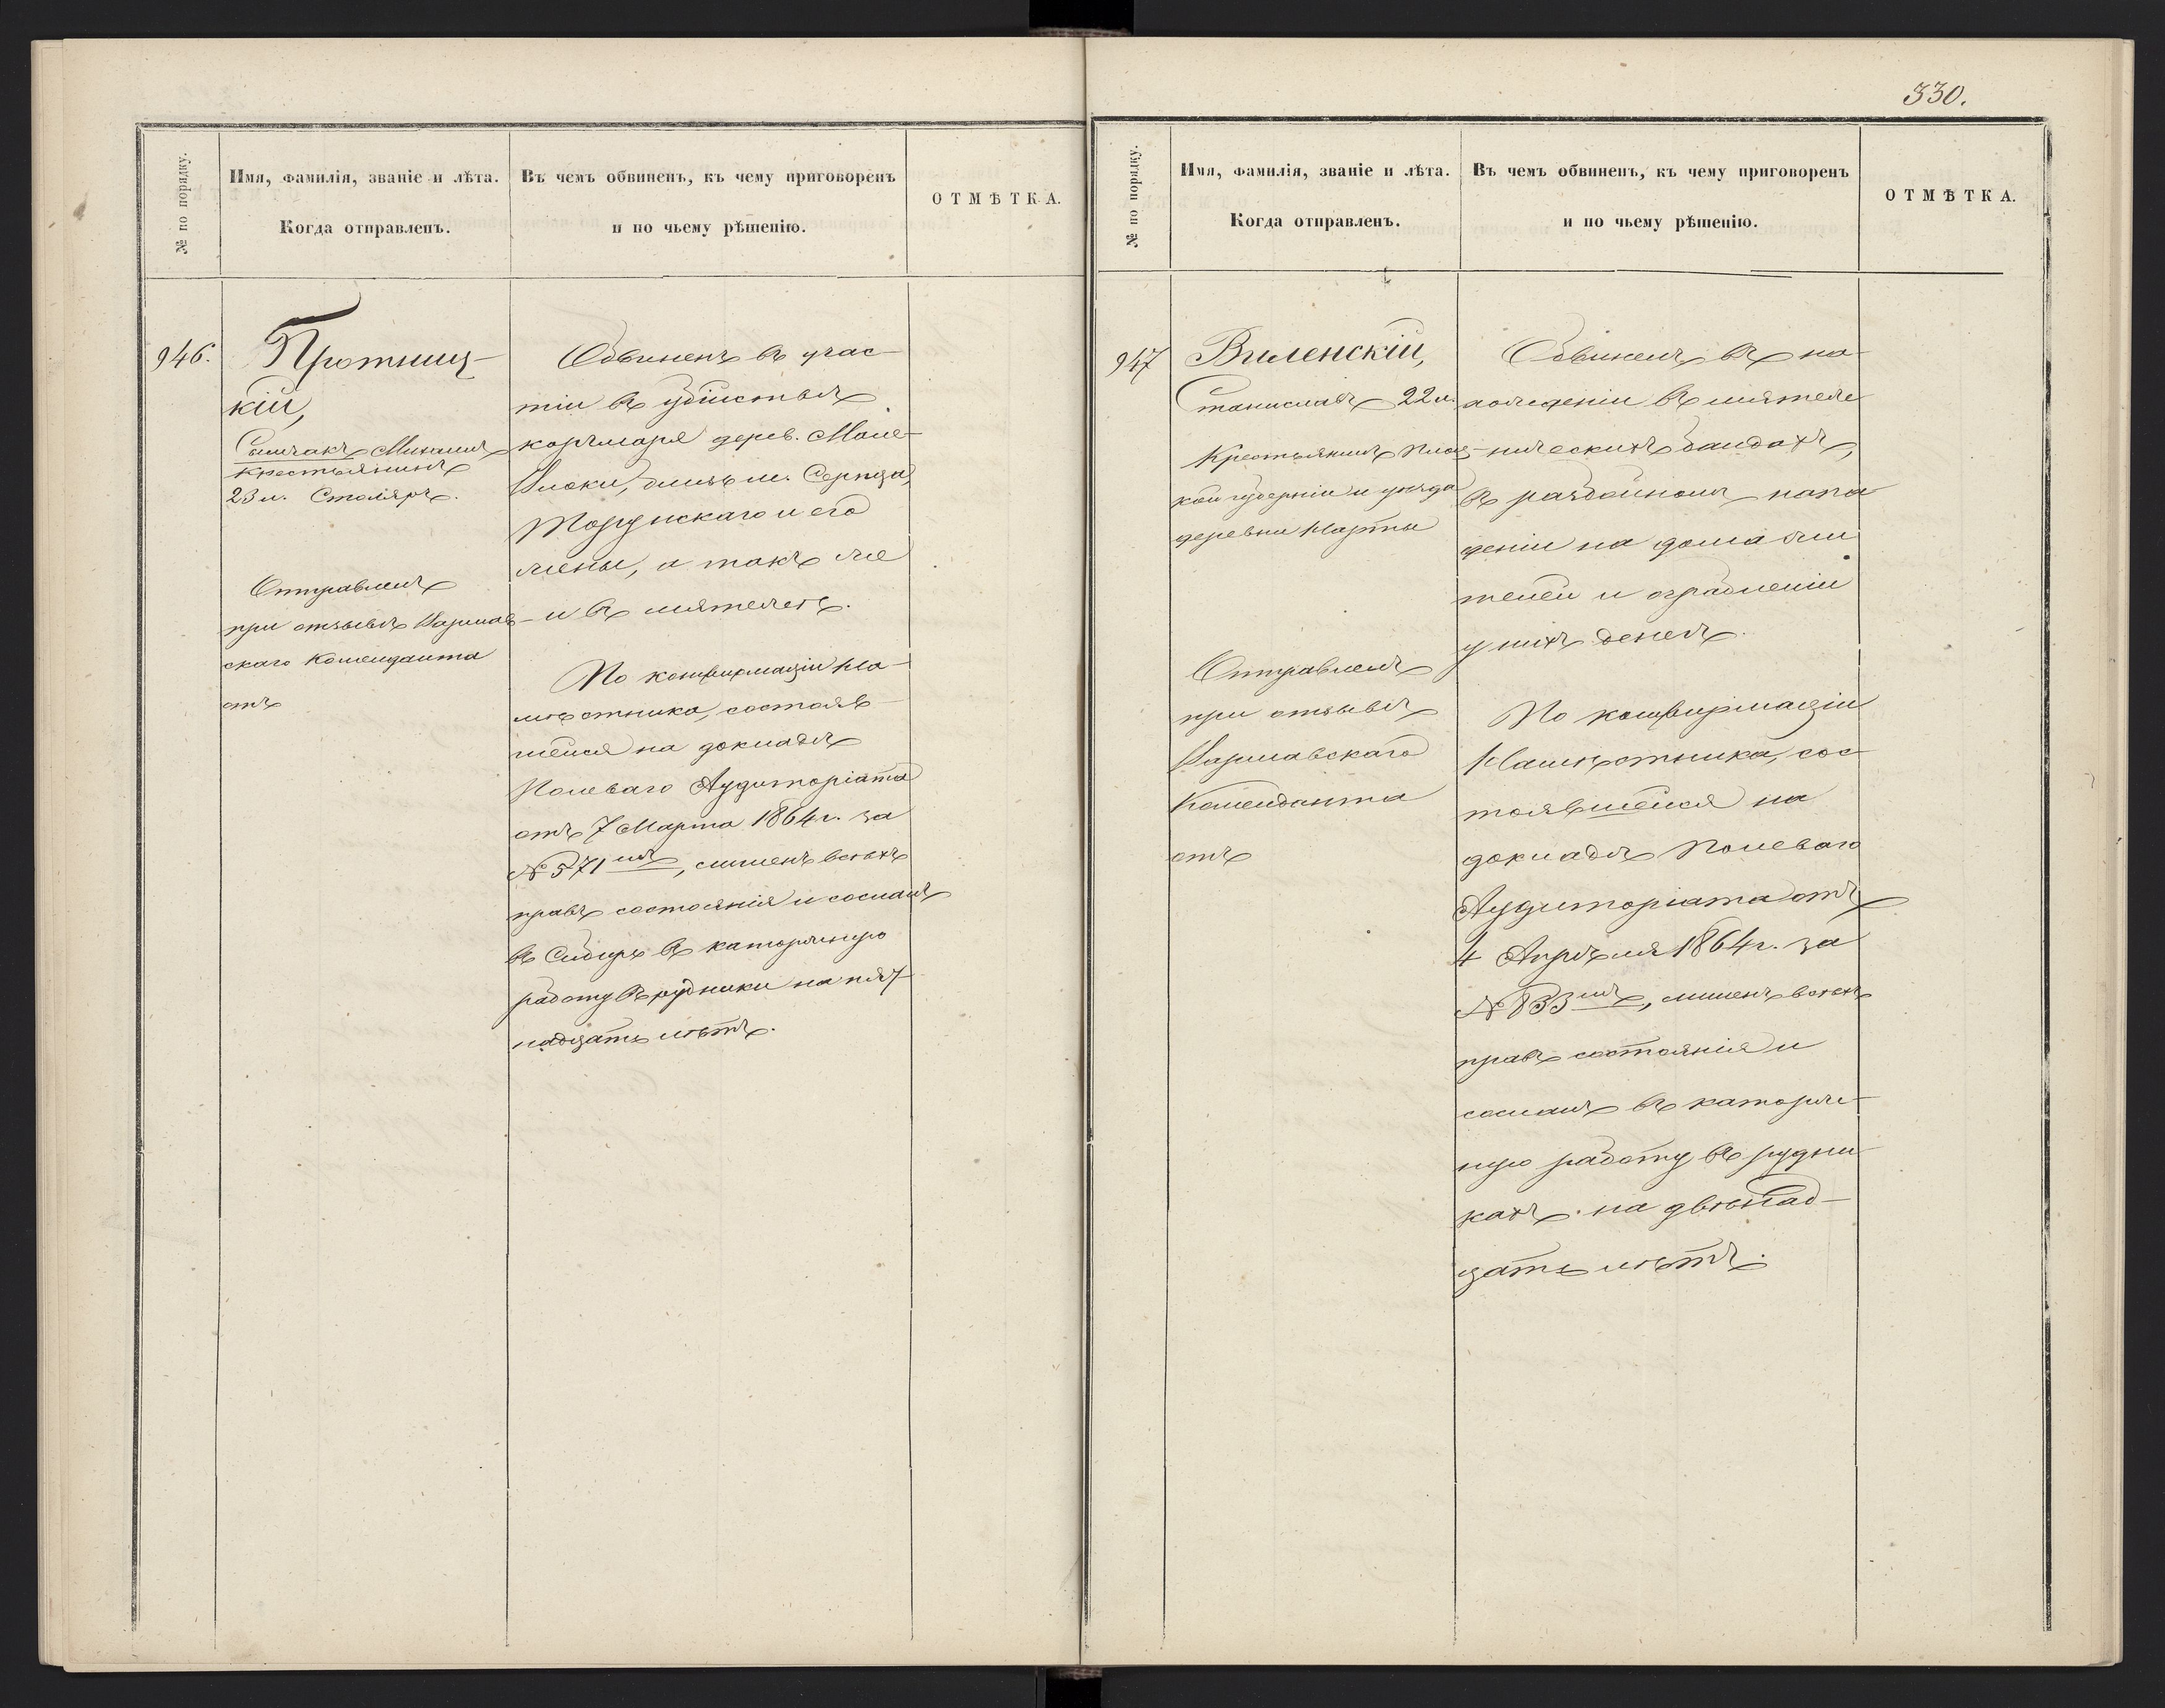 330.
№ по порядку.
Имя, фамилія, званіе и лѣта.
Когда отправленъ.
Въ чемъ обвиненъ, къ чему приговоренъ
и по чьему рѣшенію.
ОТМѢТКА.
946.
Протниц-
кій,
Михаилъ
Крестьянинъ
23 л. Столяръ.
Отправленъ
при отзывѣ Варшав-
скаго Коменданта
отъ
Обвиненъ въ учас-
тіи въ убійствѣ
корчмаря дерев.
близь м. Серпца,
и его
жены, а такъ же
и въ мятежѣ.
По конфирмаціи На-
мѣстника, состояв-
шейся на докладѣ
Полеваго Аудиторіата
отъ 7 Марта 1864 г. за
№ 571мъ, лишенъ всѣхъ
правъ состоянія и сосланъ
въ Сибирь въ каторжную
работу въ рудники на пят-
надцать лѣтъ.
№ по порядку.
Имя, фамилія, званіе и лѣта.
Когда отправленъ.
Въ чемъ обвиненъ, къ чему приговоренъ
и по чьему рѣшенію.
ОТМѢТКА.
947
Виленскій,
Станиславъ 22 л.
Крестьянинъ Плоц-
кой губерніи и уѣзда
деревни Нарты
Отправленъ
при отзывѣ
Варшавскаго
Коменданта
отъ
Обвиненъ въ на-
хожденіи въ мятеж-
ническихъ бандахъ,
въ разбойномъ напа
деніи на дома жи
телей и ограбленіи
у нихъ денегъ.
По конфирмаціи
Намѣстника, сос-
тоявшейся на
докладѣ Полеваго
Аудиторіата отъ
4 Апрѣля 1864 г. за
№ 833мъ, лишенъ всѣхъ
правъ состоянія и
сосланъ въ каторж-
ную работу въ рудни
кахъ на двѣнад-
цать лѣтъ.